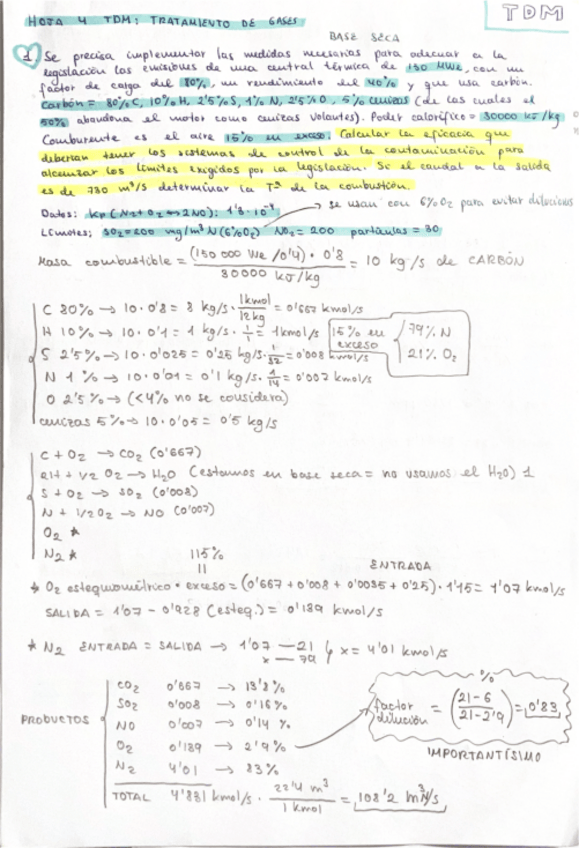 HOJA 4 TDM: TRATAMIENTO DE GASES
TDM
BASE SECA
1. Se precisa implementar las medidas necesarias para adecuar a la
legislación las emisiones de una central térmica de 150 MWe, con un
factor de carga del 80%, un rendimiento del 40% y que usa carbón.
Carbón = 80% C, 10% H, 2'5% S, 1% N, 2'5% O, 5% cenizas (de las cuales el
50% abandona el motor como cenizas volantes). Poder calorífico = 30000 kJ/kg
Comburente es el aire 15% en exceso. Calcular la eficacia que
deberían tener los sistemas de control de la contaminación para
alcanzar los límites exigidos por la legislación. Si el caudal a la salida
es de 780 m³/s determinar la Tª de la combustión.
→ se usan con 6% O2 para evitar diluciones
Datos: kp (N2+O2 ↔ 2NO): 1'8·10⁻⁴
Límites; SO2=200 mg/m³N (6% O2) NO2=200 partículas = 30
Masa combustible = (150 000 We /0'4) · 0'8 / 30000 kJ/kg = 10 kg/s de CARBÓN
C 80% → 10·0'8 = 8 kg/s · 1kmol/12kg = 0'667 kmol/s
H 10% → 10·0'1 = 1 kg/s · 1/1 = 1kmol/s
S 2'5% → 10·0'025 = 0'25 kg/s · 1/32 = 0'008 kmol/s
N 1% → 10·0'01 = 0'1 kg/s · 1/14 = 0'007 kmol/s
O 2'5% → (<4% no se considera)
cenizas 5% → 10·0'05 = 0'5 kg/s
15% en exceso
79% N
21% O2
C + O2 → CO2 (0'667)
2H + 1/2 O2 → H2O (estamos en base seca = no usamos el H2O) 1
S + O2 → SO2 (0'008)
N + 1/2O2 → NO (0'007)
O2 *
N2 *
115%
11
ENTRADA
* O2 estequiométrico · exceso = (0'667 + 0'008 + 0'0035 + 0'25) · 1'15 = 1'07 kmol/s
SALIDA = 1'07 - 0'928 (esteq.) = 0'139 kmol/s
* N2 ENTRADA = SALIDA → 1'07 — 21
x — 79
x = 4'01 kmol/s
PRODUCTOS
CO2 0'667 → 13'8%
SO2 0'008 → 0'16%
NO 0'007 → 0'14 %
O2 0'139 → 2'9%
N2 4'01 → 83%
TOTAL 4'831 kmol/s · 22'4 m³ / 1 kmol = 108'2 m³N/s
%
factor dilución = (21-6 / 21-2'9) = 0'83
IMPORTANTÍSIMO